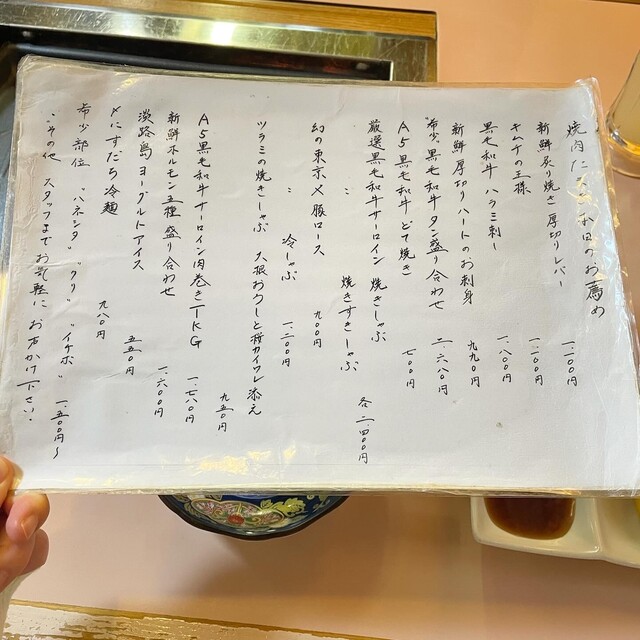 本日のお薦め
新鮮炙り焼き厚切りレバー 一.一〇〇円
キムチの王様 一.一〇〇円
黒毛和牛 ハラミ刺し 一.八〇〇円
新鮮厚切りハートのお刺身 九九〇円
"希少"黒毛和牛タン盛り合わせ 二.六八〇円
A5黒毛和牛どて焼き 七〇〇円
厳選黒毛和牛サーロイン 焼きしゃぶ
〃 焼きすきしゃぶ 各二.四〇〇円
幻の東京X豚ロース 九〇〇円
〃 冷しゃぶ 一.二〇〇円
ツラミの焼きしゃぶ 大根おろしと桜カイワレ添え 九五〇円
A5黒毛和牛サーロイン肉巻きTKG 一.七八〇円
新鮮ホルモン五種盛り合わせ 一.六〇〇円
淡路島ヨーグルトアイス 五五〇円
〆にすだち冷麺 九八〇円
希少部位 "ハネシタ" "クリ" "イチボ" 一.五〇〇円〜
その他 スタッフまでお気軽に お声かけ下さい.